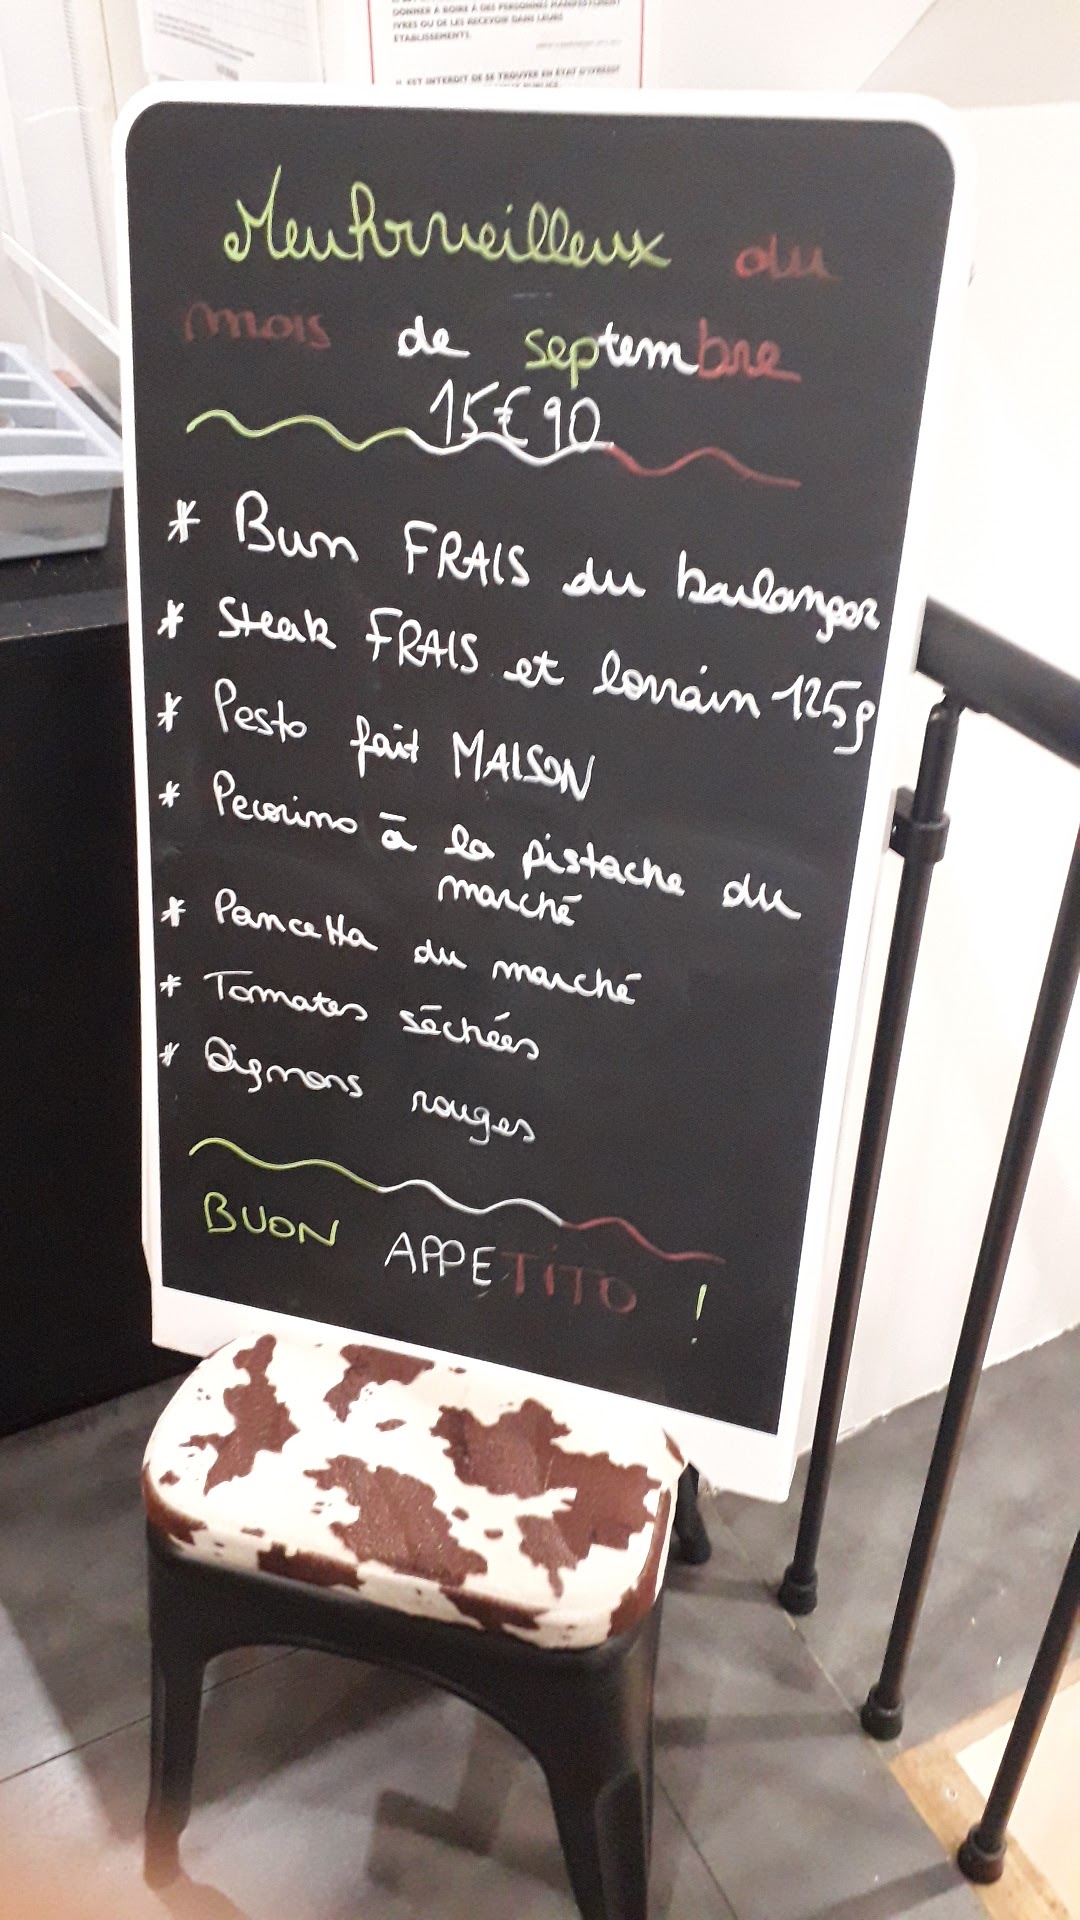 DONNER À BOIRE À DES PERSONNES MANIFESTEMENT
IVRES OU DE LES RECEVOIR DANS LEURS
ÉTABLISSEMENTS.
IL EST INTERDIT DE SE TROUVER EN ÉTAT D'IVRESSE
Meuhrveilleux du
mois de septembre
15€90
* Bun FRAIS du boulanger
* Steak FRAIS et lorrain 125g
* Pesto fait MAISON
* Pecorino à la pistache du
marché
* Pancetta du marché
* Tomates séchées
* Oignons rouges
BUON APPETITO !